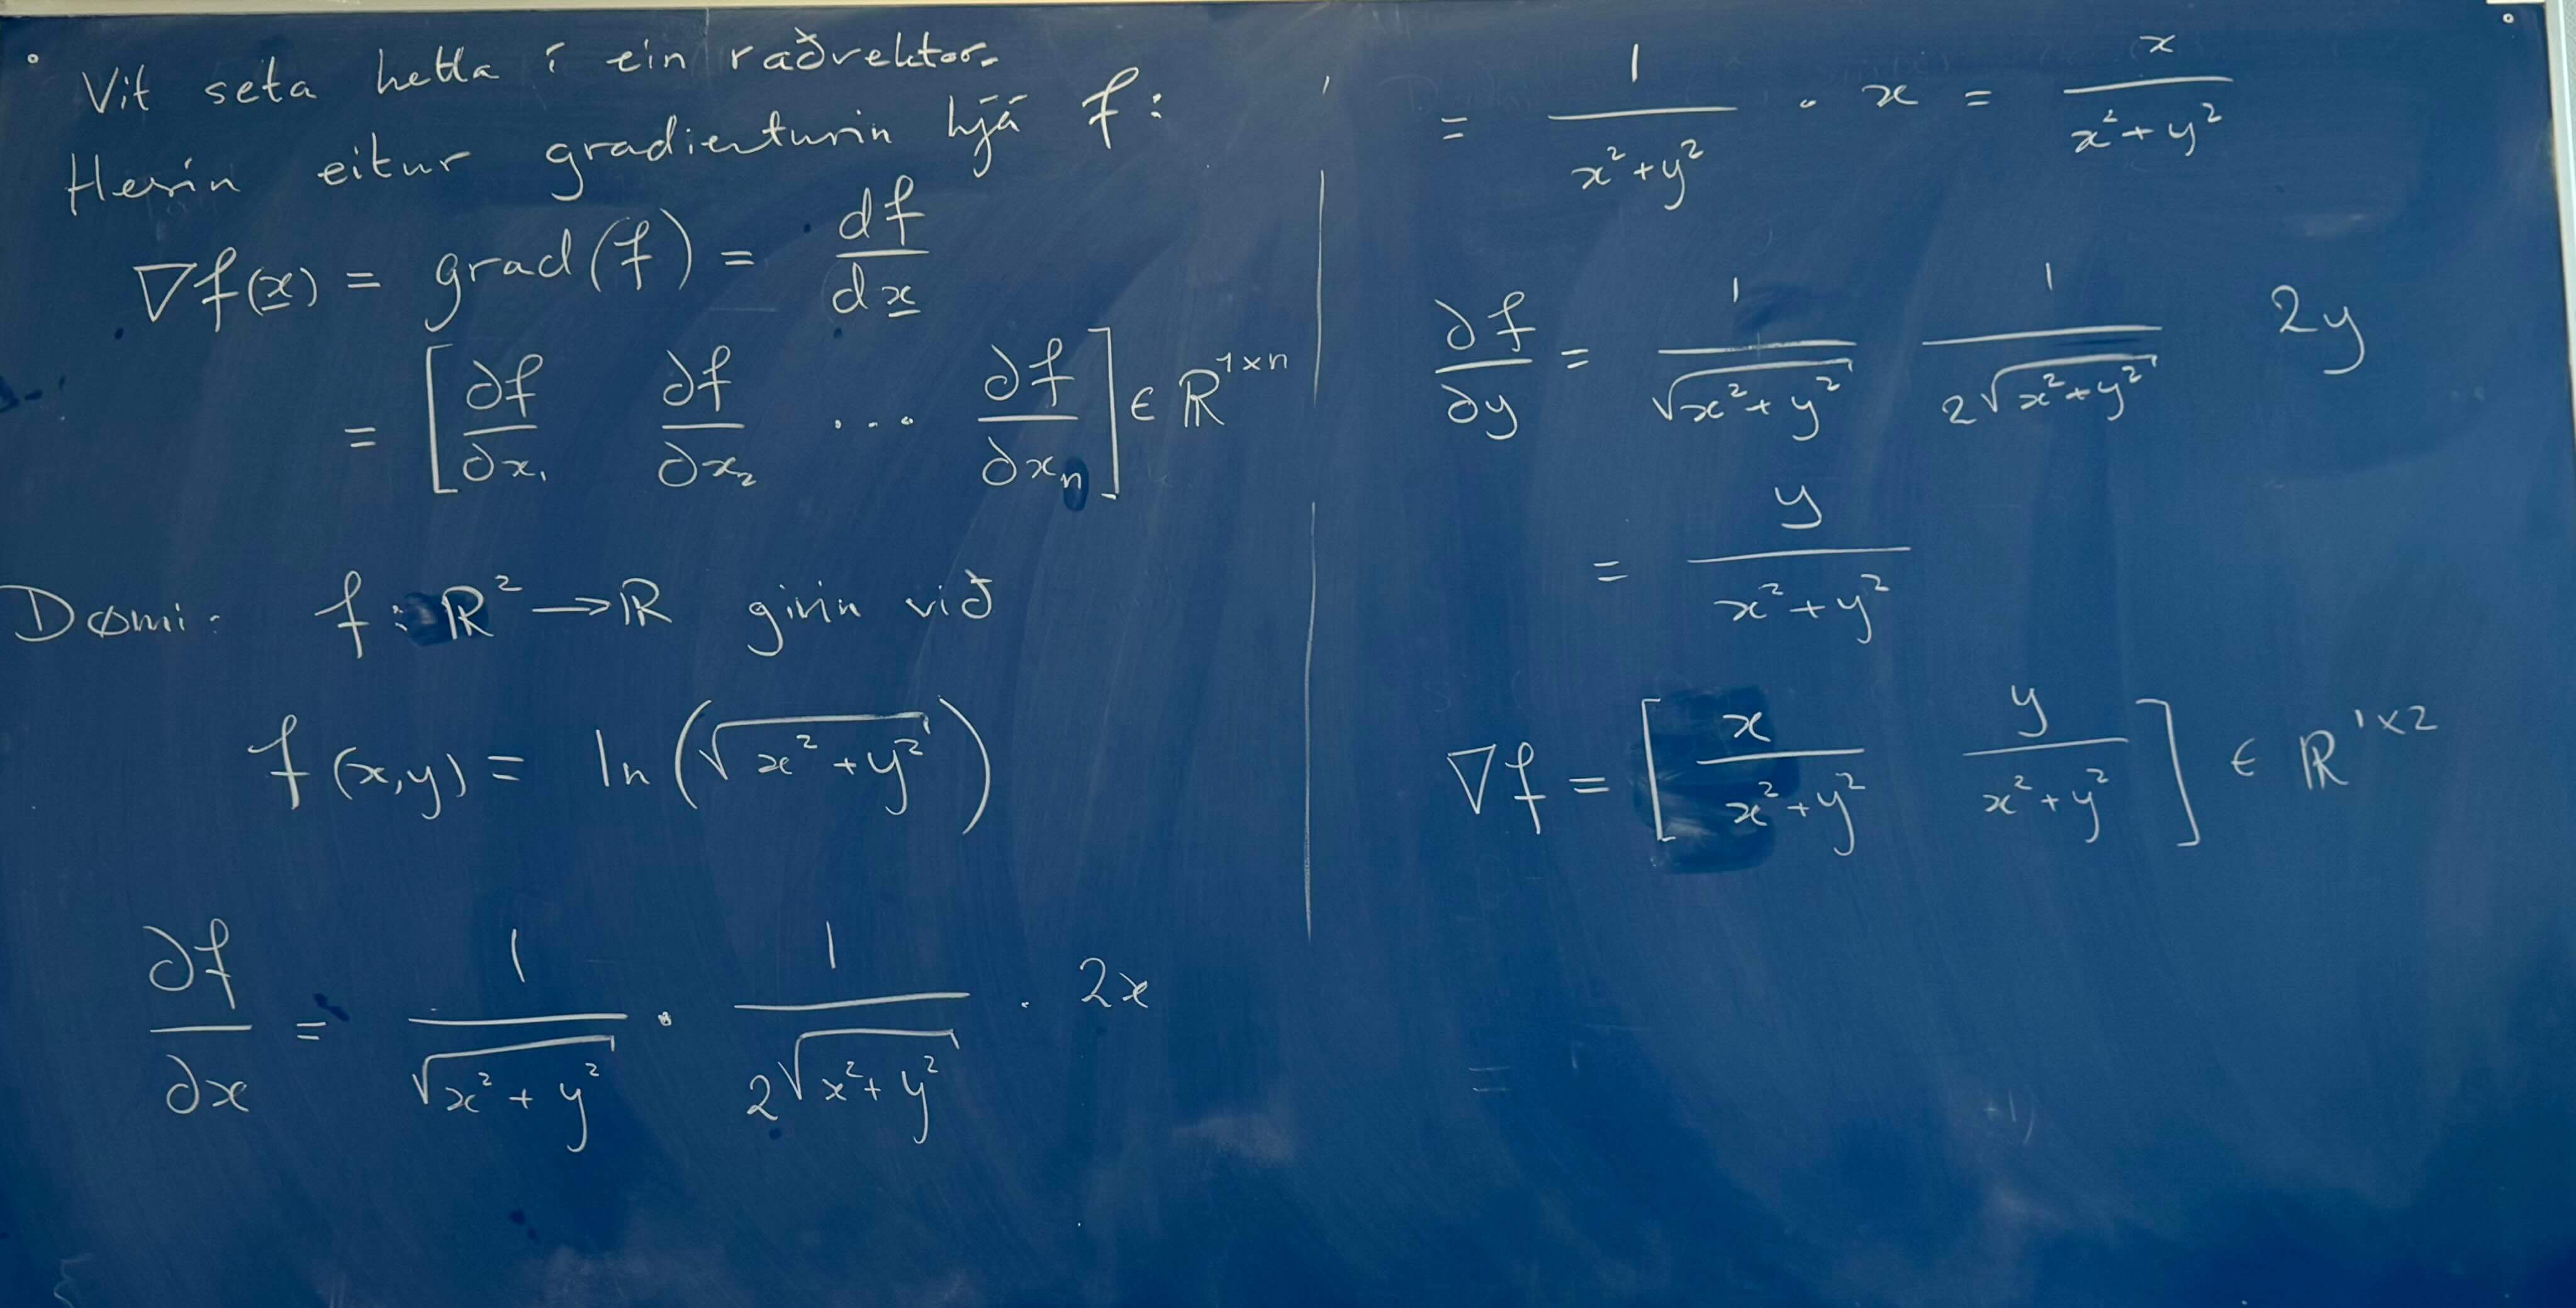 Vit seta hetta í ein raðvektor.
Hesin eitur gradienturin hjá f:
∇f(x̲) = grad(f) = df/dx̲
= [∂f/∂x₁ ∂f/∂x₂ ... ∂f/∂xₙ] ∈ ℝ¹ˣⁿ
Dømi: f: ℝ² → ℝ givin við
f(x,y) = ln(√(x²+y²))
∂f/∂x = 1/√(x²+y²) · 1/(2√(x²+y²)) · 2x
= 1/(x²+y²) · x = x/(x²+y²)
∂f/∂y = 1/√(x²+y²) 1/(2√(x²+y²)) 2y
= y/(x²+y²)
∇f = [x/(x²+y²) y/(x²+y²)] ∈ ℝ¹ˣ²